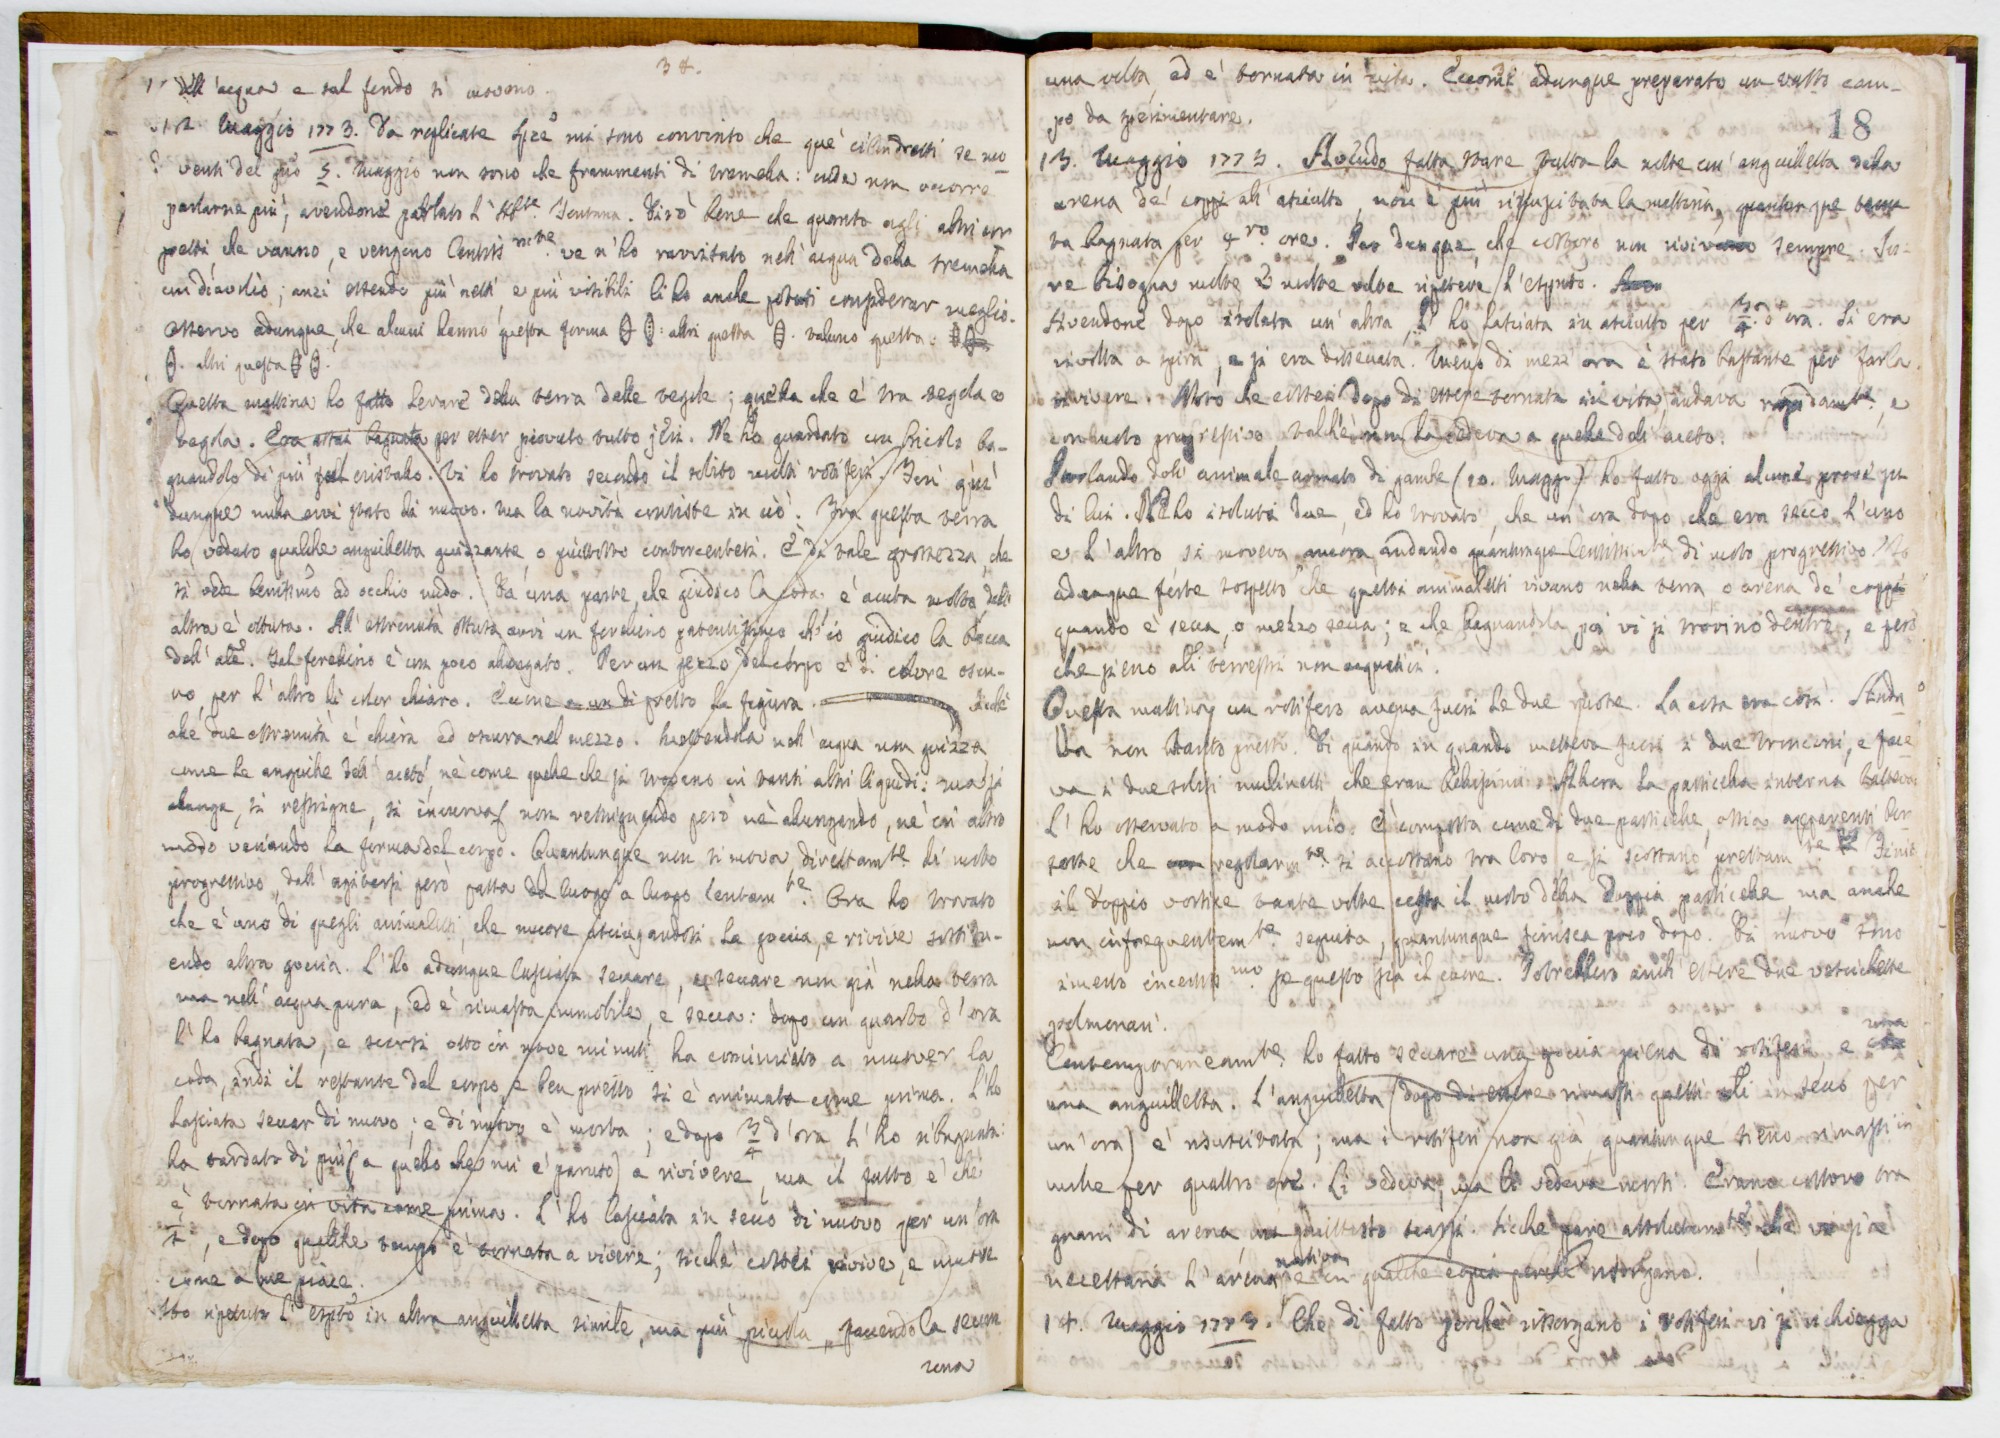 34.
nell'acqua e sul fondo si movono.
12. Maggio 1773. Da replicate spze mi sono convinto che que' cilindretti se mo
venti del gno 5. Maggio non sono che frammenti di tremella: onde non occorre
parlarne più, avendone parlato l'Abte Fontana. Dirò bene che quanto agli altri cor
petti che vanno, e vengono lentissmte ve n'ho ravvisato nell'acqua della tremella
un diavolio; anzi essendo più netti e più visibili li ho anche potuti considerar meglio.
Osservo adunque, che alcuni hanno questa forma altri questa taluno questa
altri questa
Questa mattina ho fatto levare della terra dalle tegole; quella che è tra tegola e
tegola. Era assai bagnata per esser piovuto tutto jeri. Ne ho guardato un bricolo ba-
gnandolo di più sul cristallo. Vi ho trovato secondo il solito molti rotiferi. Fin qui
dunque nulla evvi stato di nuovo. Ma la novità consiste in ciò. Fra questa terra
ho veduto qualche anguilletta guizzante, o piuttosto contorcentesi. È di tale grossezza, che
si vede benissimo ad occhio nudo. Da una parte, che giudico la coda è acuta molto, dall'
altra è ottusa. All'estremità ottusa avvi un forellino patentissimo ch'io giudico la bocca
dell'ale. Tal forellino è un poco allungato. Per un pezzo del corpo è di colore oscu-
ro, per l'altro di color chiaro. Eccone a un di presso la figura. Sicchè
alle due estremità è chiara ed oscura nel mezzo. Mettendola nell'acqua non guizza
come le anguille dell'aceto, nè come quelle che si trovano in tanti altri liquidi: ma si
allunga, si restrigne, si incurva non restrignendo però nè allungando, nè in altro
modo variando la forma del corpo. Quantunque non si mova direttamte di moto
progressivo, dall'agitarsi però passa da luogo a luogo lentamte. Ora ho trovato
che è uno di quegli animaletti, che muore asciugandosi la goccia, e rivive sostitu-
endo altra goccia. L'ho adunque lasciata seccare, e seccare non già nella terra
ma nell'acqua pura, ed è rimasta immobile, e secca: dopo un quarto d'ora
l'ho bagnata, e scorsi otto in nove minuti ha cominciato a muover la
coda, indi il restante del corpo, e ben presto si è animata come prima. L'ho
lasciata seccar di nuovo; e di nuovo è morta; e dopo 3/4 d'ora l'ho ribagnata:
ha tardato di più (a quello che mi è paruto) a rivivere, ma il fatto è che
è tornata in vita come prima. L'ho lasciata in secco di nuovo per un'ora
, e dopo qualche tempo è tornata a vivere; sicchè costei rivive, e muore
come a me piace.
Ho ripetuto l'esptto in altra anguilletta simile, ma più piccola, facendola seccar
una
18
una volta, ed è tornata in vita. Eccomi adunque preparato un vasto cam-
po da sperimentare.
13. Maggio 1773. Avendo fatta stare tutta la notte un'anguilletta nella
arena de' coppi all'asciutto, non è più risuscitata la mattina, quantunque tenu
ta bagnata per 4ro ore. Par dunque, che costoro non rivivano sempre. Ju-
re bisogna molte e molte volte ripetere l'esptto.
Avendone dopo isolata un'altra, l'ho lasciata in asciutto per 3/4 d'ora. Si era
rivolta a spira, e si era disseccata. Meno di mezz'ora è stato bastante per farla
rivivere. Noto che costei dopo di essere tornata in vita, andava rapidamte, e
con moto progressivo talchè non la cedeva a quelle dell'aceto.
Parlando dell'animale armato di gambe (10. Maggio) ho fatto oggi alcune prove su
di lui. Ne ho isolati due, ed ho trovato, che un'ora dopo che era secco l'uno
e l'altro, si moveva ancora, andando quantunque lentissimte di moto progressivo. Ho
adunque forte sospetto che questi animaletti vivano nella terra o arena de' coppi
quando è secca, o mezzo secca; e che bagnandola poi vi si trovino dentro, e però
che sieno ali terrestri non acquatici.
Questa mattina un rotifero aveva fuori le due ruote. La cosa era così. Anda
va non tanto presto. Di quando in quando metteva fuori i due tronconi, e face
va i due soliti mulinelli che eran bellissimi. Allora la particella interna batteva
l'ho osservato a modo mio. È composta come di due particelle, ossia apparenti bor-
sette che regolarmte si accostano tra loro e si scostano prestamte. Finito
il doppio vortice tante volte cessa il moto della doppia particella, ma anche
non infrequentemte seguita, quantunque finisca poco dopo. Di nuovo sono
rimesso incertissmo se questo sia il cuore. Potrebbero anch'essere due vescichette
polmonari.
Contemporaneamte ho fatto seccare una goccia piena di rotiferi e una
una anguilletta. L'anguilletta (dopo di essere rimasti questi ali in secco per
un'ora) è risuscitata; ma i rotiferi non già, quantunque sieno rimasti in
molle per quattro ore. Li vedeva, ma li vedeva morti. Erano costoro tra
grani di arena ma piuttosto scarsi. Sicchè pare assolutamte che vi sia
necessaria l'arena nativa e in qualche copia perchè risorgano.
14. Maggio 1773. Che di fatto perchè risorgano i rotiferi vi si richiegga